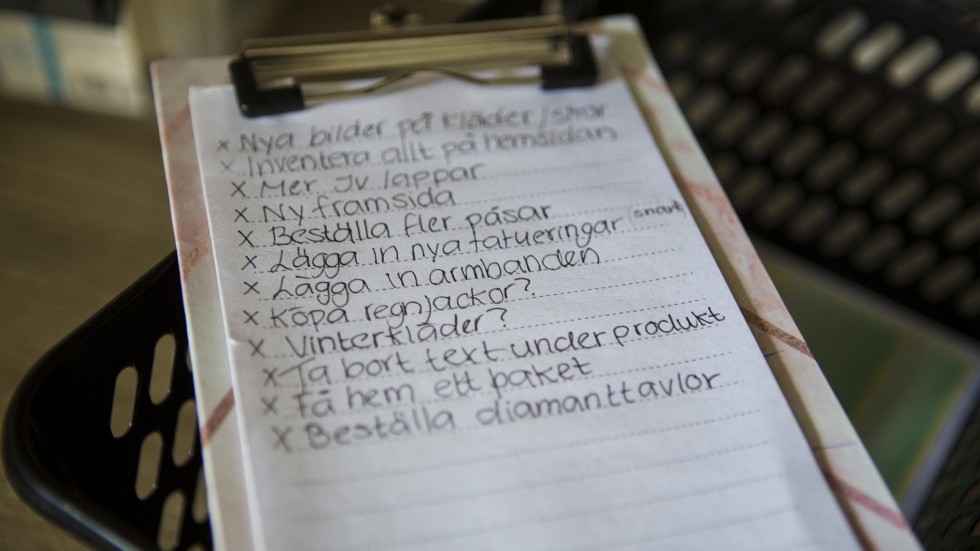 x Nya bilder på kläder/skor
x Inventera allt på hemsidan
x Mer Jv lappar
x Ny framsida
x Beställa fler påsar
x Lägga in nya tatueringar (snart)
x Lägga in armbanden
x Köpa regnjackor?
x Vinterkläder?
x Ta bort text under produkt
x Få hem ett paket
x Beställa diamanttavlor